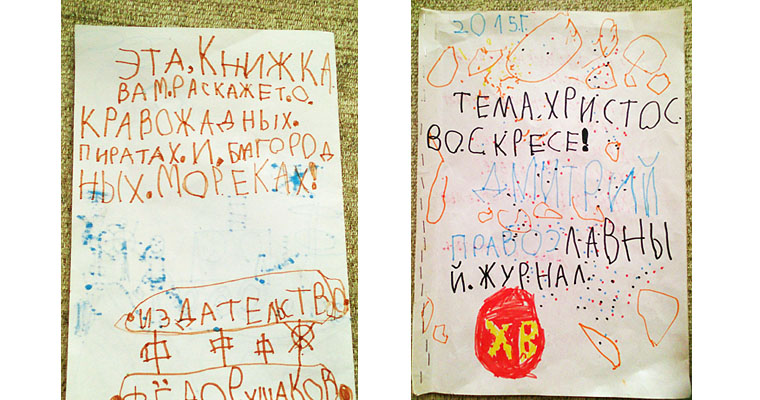 ЭТА, КНИЖКА.
ВАМ.РАСКАЖЕТ.О.
КРАВОЖАДНЫХ.
ПИРАТАХ.И,БЛАГОРОД
НЫХ.МОРЕКАХ!
ИЗДАТЕЛЬСТВО.
ФЁДОР.УШАКОВ.
2015Г.
ТЕМА.ХРИСТОС.
ВОСКРЕСЕ!
ДМИТРИЙ
ПРАВОСЛАВНЫ
Й.ЖУРНАЛ.
ХВ